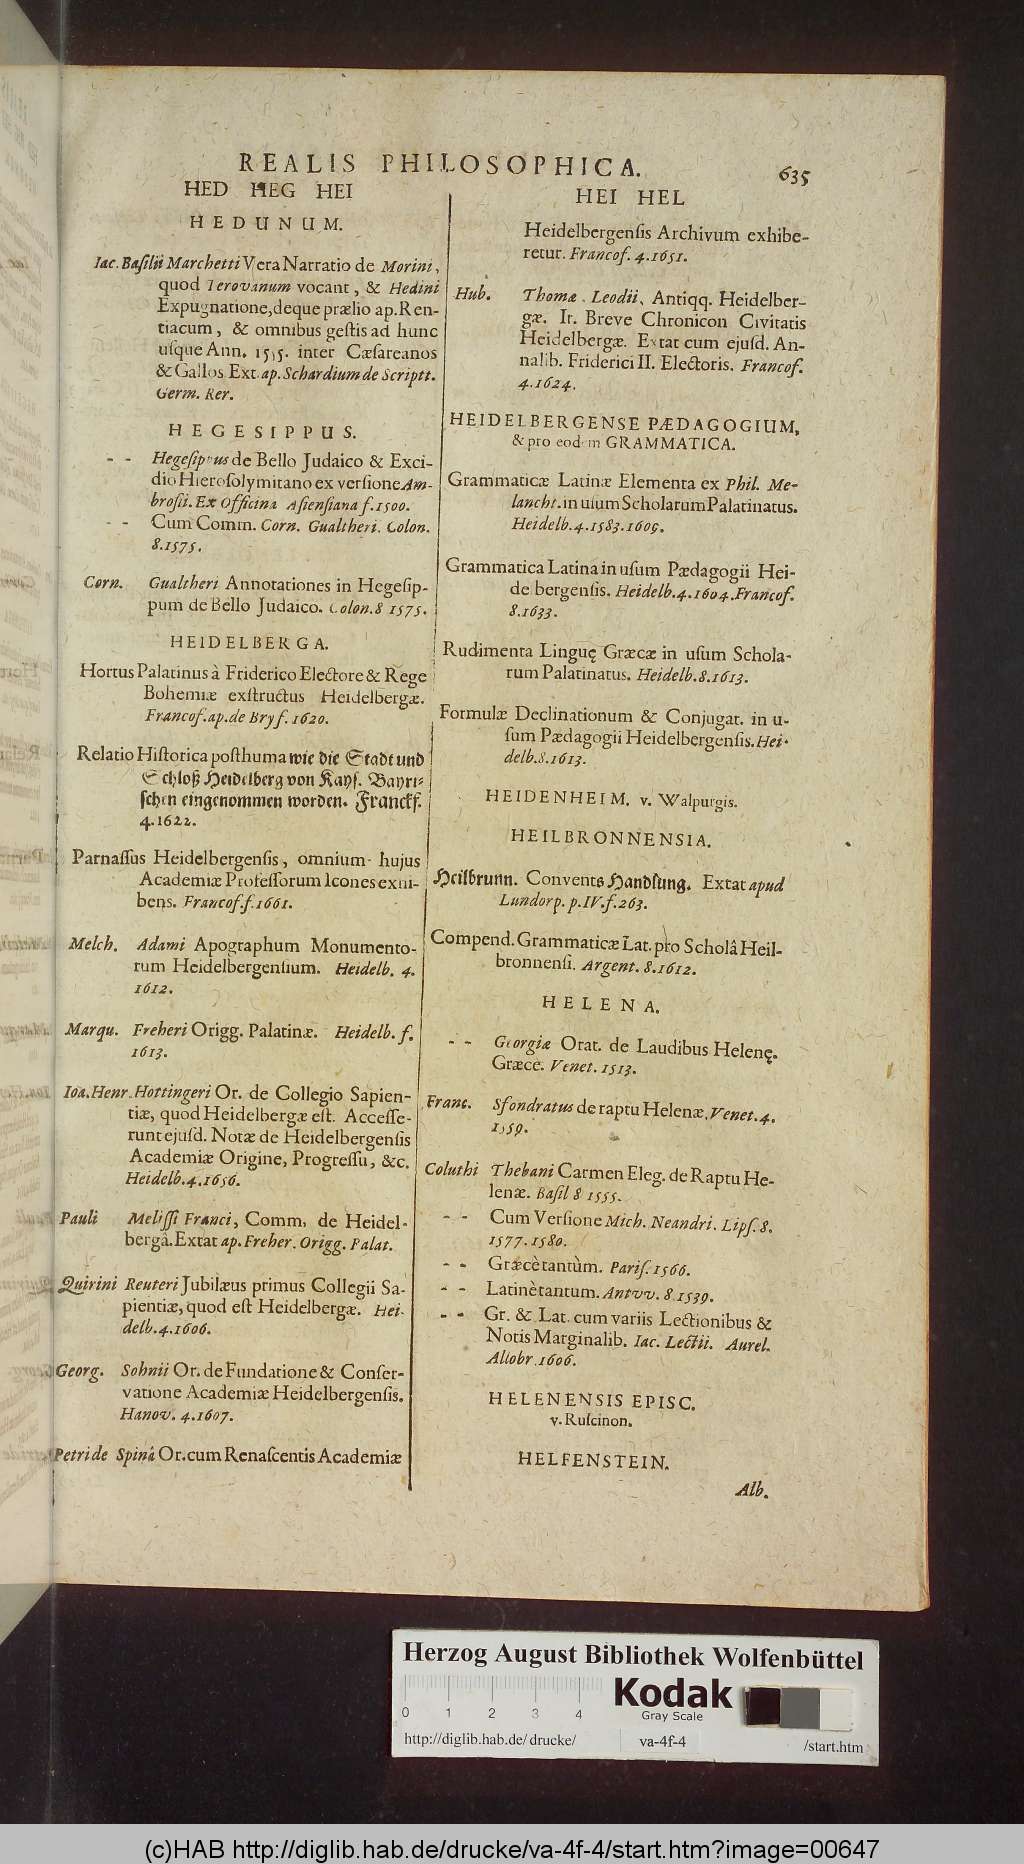 REALIS PHILOSOPHICA. 635
HED HEG HEI
HEDUNUM.
Iac. Basilii Marchetti Vera Narratio de Morini,
quod Terovanum vocant, & Hedini
Expugnatione, deque prælio ap. Ren-
tiacum, & omnibus gestis ad hunc
usque Ann. 1555. inter Cæsareanos
& Gallos Ext. ap. Schardium de Scriptt.
Germ. Rer.
HEGESIPPUS.
- - Hegesippus de Bello Judaico & Exci-
dio Hierosolymitano ex versione Am-
brosii. Ex Officina Asiensiana f. 1500.
- - Cum Comm. Corn. Gualtheri. Colon.
8. 1575.
Corn. Gualtheri Annotationes in Hegesip-
pum de Bello Judaico. Colon. 8 1575.
HEIDELBERGA.
Hortus Palatinus à Friderico Electore & Rege
Bohemiæ exstructus Heidelbergæ.
Francof. ap. de Bry f. 1620.
Relatio Historica posthuma wie die Stadt und
Schloß Heidelberg von Kays. Bayri-
schen eingenommen worden. Franckf.
4. 1622.
Parnassus Heidelbergensis, omnium hujus
Academiæ Professorum Icones exhi-
bens. Francof. f. 1661.
Melch. Adami Apographum Monumento-
rum Heidelbergensium. Heidelb. 4.
1612.
Marqu. Freheri Origg. Palatinæ. Heidelb. f.
1613.
Ioa. Henr. Hottingeri Or. de Collegio Sapien-
tiæ, quod Heidelbergæ est. Accesse-
runt ejusd. Notæ de Heidelbergensis
Academiæ Origine, Progressu, &c.
Heidelb. 4. 1656.
Pauli Melissi Franci, Comm. de Heidel-
bergâ. Extat ap. Freher. Origg. Palat.
Quirini Reuteri Jubilæus primus Collegii Sa-
pientiæ, quod est Heidelbergæ. Hei-
delb. 4. 1606.
Georg. Sohnii Or. de Fundatione & Conser-
vatione Academiæ Heidelbergensis.
Hanov. 4. 1607.
Petri de Spinâ Or. cum Renascentis Academiæ
HEI HEL
Heidelbergensis Archivum exhibe-
retur. Francof. 4. 1651.
Hub. Thomæ. Leodii, Antiqq. Heidelber-
gæ. It. Breve Chronicon Civitatis
Heidelbergæ. Extat cum ejusd. An-
nalib. Friderici II. Electoris. Francof.
4. 1624.
HEIDELBERGENSE PÆDAGOGIUM,
& pro eodem GRAMMATICA.
Grammaticæ Latinæ Elementa ex Phil. Me-
lancht. in usum Scholarum Palatinatus.
Heidelb. 4. 1583. 1609.
Grammatica Latina in usum Pædagogii Hei-
delbergensis. Heidelb. 4. 1604. Francof.
8. 1633.
Rudimenta Linguę Græcæ in usum Schola-
rum Palatinatus. Heidelb. 8. 1613.
Formulæ Declinationum & Conjugat. in u-
sum Pædagogii Heidelbergensis. Hei-
delb. 8. 1613.
HEIDENHEIM. v. Walpurgis.
HEILBRONNENSIA.
Heilbrunn. Convents Handlung. Extat apud
Lundorp. p. IV. f. 263.
Compend. Grammaticæ Lat. pro Scholâ Heil-
bronnensi. Argent. 8. 1612.
HELENA.
- - Georgiæ Orat. de Laudibus Helenę.
Græce. Venet. 1513.
Franc. Sfondratus de raptu Helenæ. Venet. 4.
1559.
Coluthi Thebani Carmen Eleg. de Raptu He-
lenæ. Basil 8 1555.
- - Cum Versione Mich. Neandri. Lips. 8.
1577. 1580.
- - Græcè tantùm. Paris. 1566.
- - Latinè tantum. Antvv. 8. 1539.
- - Gr. & Lat. cum variis Lectionibus &
Notis Marginalib. Iac. Lectii. Aurel.
Allobr. 1606.
HELENENSIS EPISC.
v. Ruscinon.
HELFENSTEIN.
Alb.
Herzog August Bibliothek Wolfenbüttel
0 1 2 3 4
Kodak
Gray Scale
http://diglib.hab.de/drucke/ va-4f-4 /start.htm
(c)HAB http://diglib.hab.de/drucke/va-4f-4/start.htm?image=00647